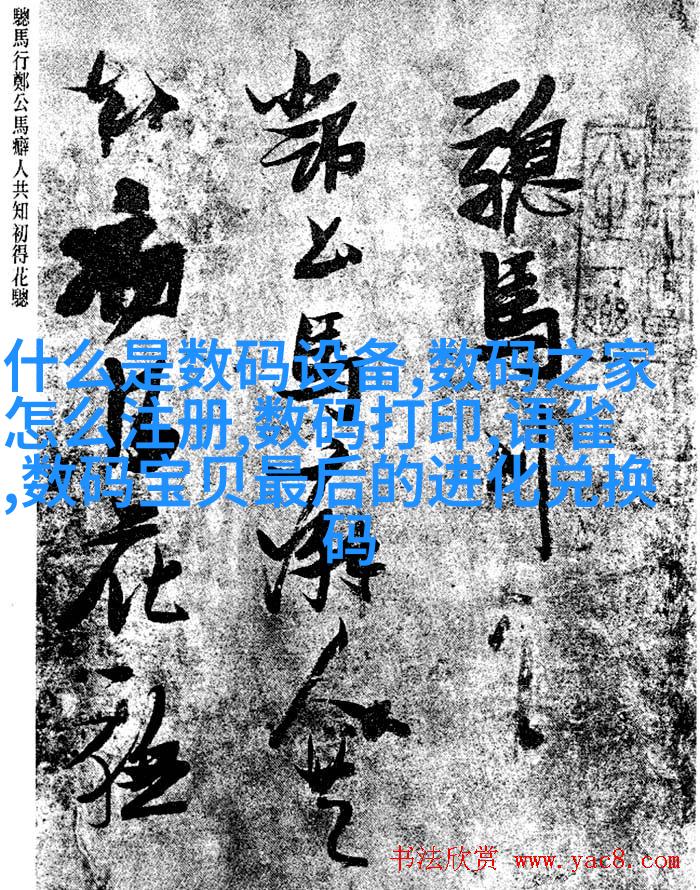 驄馬行鄭公馬癖人共知初得花驄
驄馬行
鄭公馬癖人共
知初得花驄
什么是数码设备,数码之家
怎么注册,数码打印,语雀
,数码宝贝最后的进化兑换
码
书法欣赏 www.yac8.com